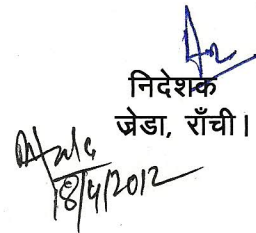 निदेशक
ज्रेडा, राँची।
18/4/2012